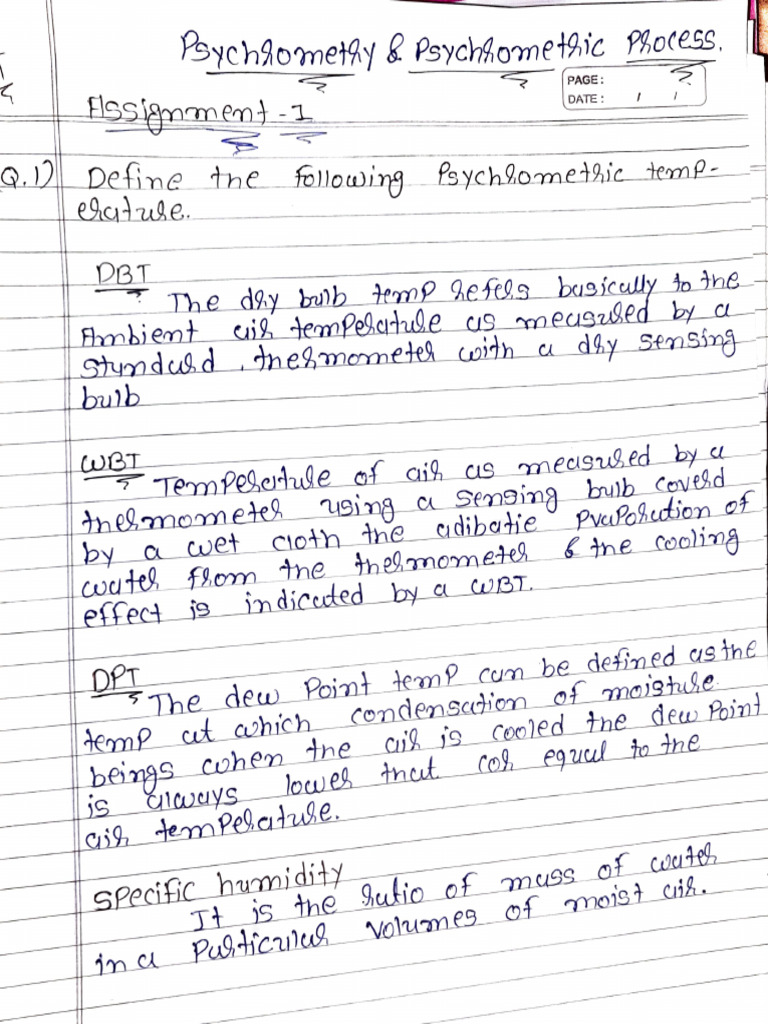 Psychrometry & Psychrometric Process.
PAGE:
DATE: / /
Assignment - 1
Q.1) Define the following Psychrometric temp-
erature.
DBT
The dry bulb temp refers basically to the
Ambient air temperature as measured by a
standard . thermometer with a dry sensing
bulb
WBT
Temperature of air as measured by a
thermometer using a sensing bulb coverd
by a wet cloth the adibatie Pvaporation of
water from the thermometer & the cooling
effect is indicated by a WBT.
DPT
The dew Point temp can be defined as the
temp at which condensation of moisture
beings when the air is cooled the dew Point
is always lower that cor equal to the
air temperature.
Specific humidity
It is the ratio of mass of water
in a Particular volumes of moist air.